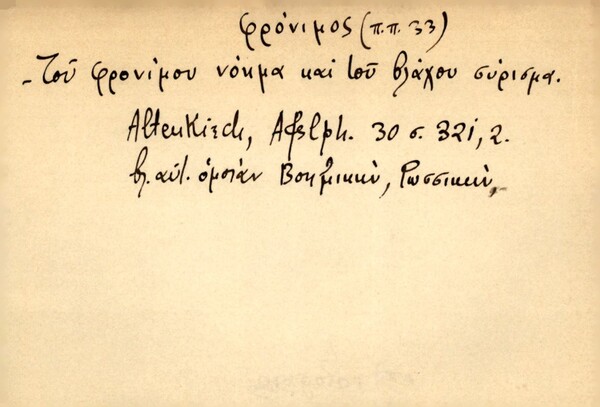 φρόνιμος (π.π. 33)
- Τοῦ φρονίμου νόημα καὶ τοῦ βλάχου σύρισμα.
Altenkirch, Afslph. 30 σ. 321, 2.
βλ. αὐτ. ὁμοίαν Βοημικὴν, Ρωσσικὴν,